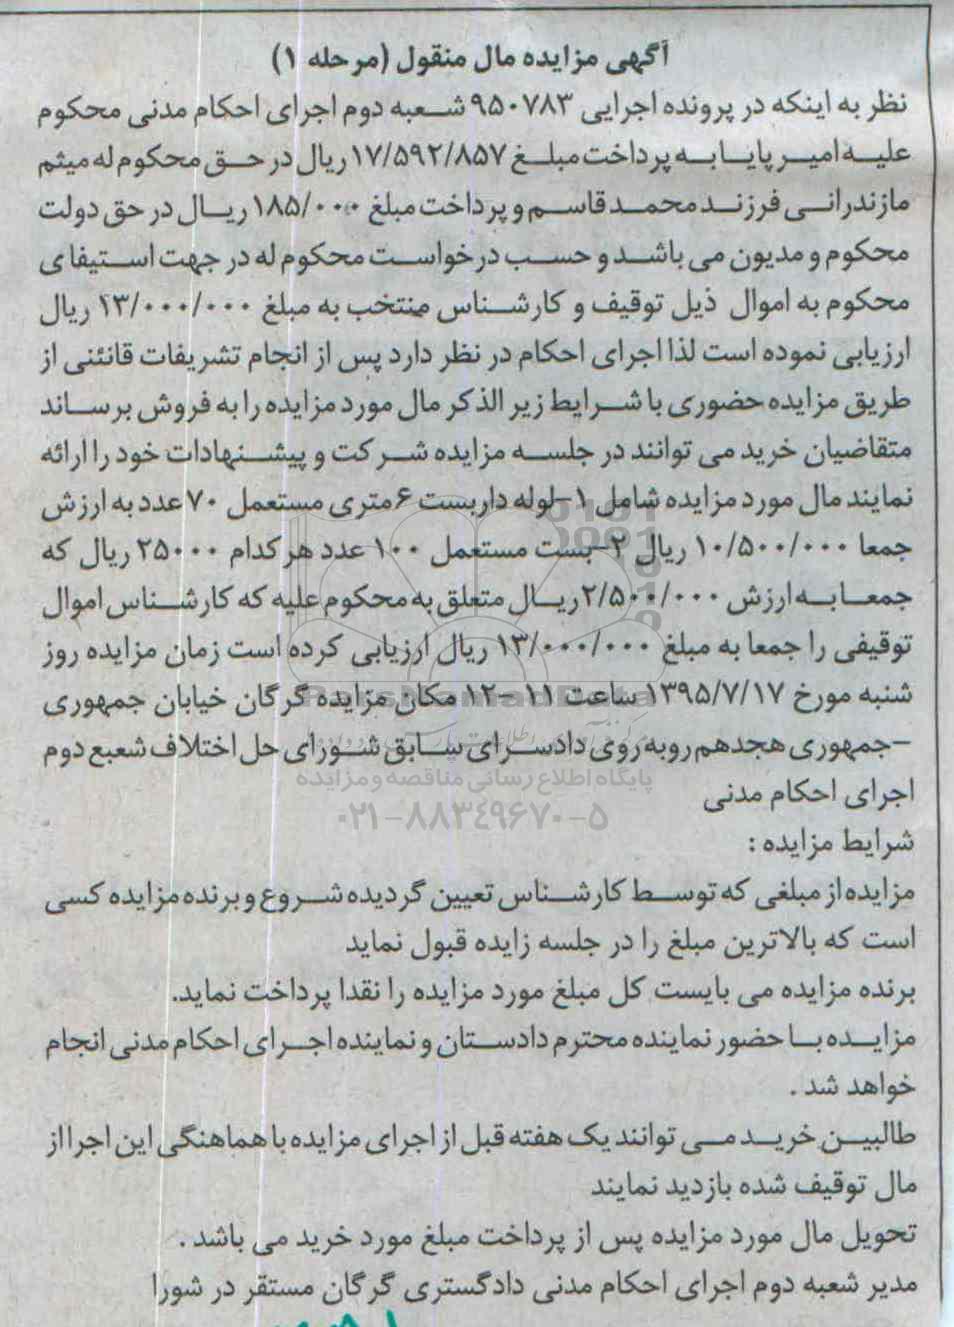 آگهی مزایده مال منقول (مرحله ۱)
نظر به اینکه در پرونده اجرایی ۹۵۰۷۸۳ شعبه دوم اجرای احکام مدنی محکوم
علیه امیر پایا به پرداخت مبلغ ۱۷/۵۹۲/۸۵۷ ریال در حق محکوم له میثم
مازندرانی فرزند محمد قاسم و پرداخت مبلغ ۱۸۵/۰۰۰ ریال در حق دولت
محکوم و مدیون می باشد و حسب درخواست محکوم له در جهت استیفای
محکوم به اموال ذیل توقیف و کارشناس منتخب به مبلغ ۱۳/۰۰۰/۰۰۰ ریال
ارزیابی نموده است لذا اجرای احکام در نظر دارد پس از انجام تشریفات قانئنی از
طریق مزایده حضوری با شرایط زیر الذکر مال مورد مزایده را به فروش برساند
متقاضیان خرید می توانند در جلسه مزایده شرکت و پیشنهادات خود را ارائه
نمایند مال مورد مزایده شامل ۱-لوله داربست ۶متری مستعمل ۷۰ عدد به ارزش
جمعا ۱۰/۵۰۰/۰۰۰ ریال ۲-بست مستعمل ۱۰۰ عدد هر کدام ۲۵۰۰۰ ریال که
جمعا به ارزش ۲/۵۰۰/۰۰۰ریال متعلق به محکوم علیه که کارشناس اموال
توقیفی را جمعا به مبلغ ۱۳/۰۰۰/۰۰۰ ریال ارزیابی کرده است زمان مزایده روز
شنبه مورخ ۱۳۹۵/۷/۱۷ ساعت ۱۱ -۱۲ مکان مزایده گرگان خیابان جمهوری
-جمهوری هجدهم روبه روی دادسرای سابق شورای حل اختلاف شعبع دوم
پایگاه اطلاع رسانی مناقصه و مزایده
اجرای احکام مدنی
۰۲۱-۸۸۳۴۹۶۷۰-۵
شرایط مزایده :
مزایده از مبلغی که توسط کارشناس تعیین گردیده شروع و برنده مزایده کسی
است که بالاترین مبلغ را در جلسه زایده قبول نماید
برنده مزایده می بایست کل مبلغ مورد مزایده را نقدا پرداخت نماید.
مزایده با حضور نماینده محترم دادستان و نماینده اجرای احکام مدنی انجام
خواهد شد .
طالبین خرید می توانند یک هفته قبل از اجرای مزایده با هماهنگی این اجرا از
مال توقیف شده بازدید نمایند
تحویل مال مورد مزایده پس از پرداخت مبلغ مورد خرید می باشد .
مدیر شعبه دوم اجرای احکام مدنی دادگستری گرگان مستقر در شورا